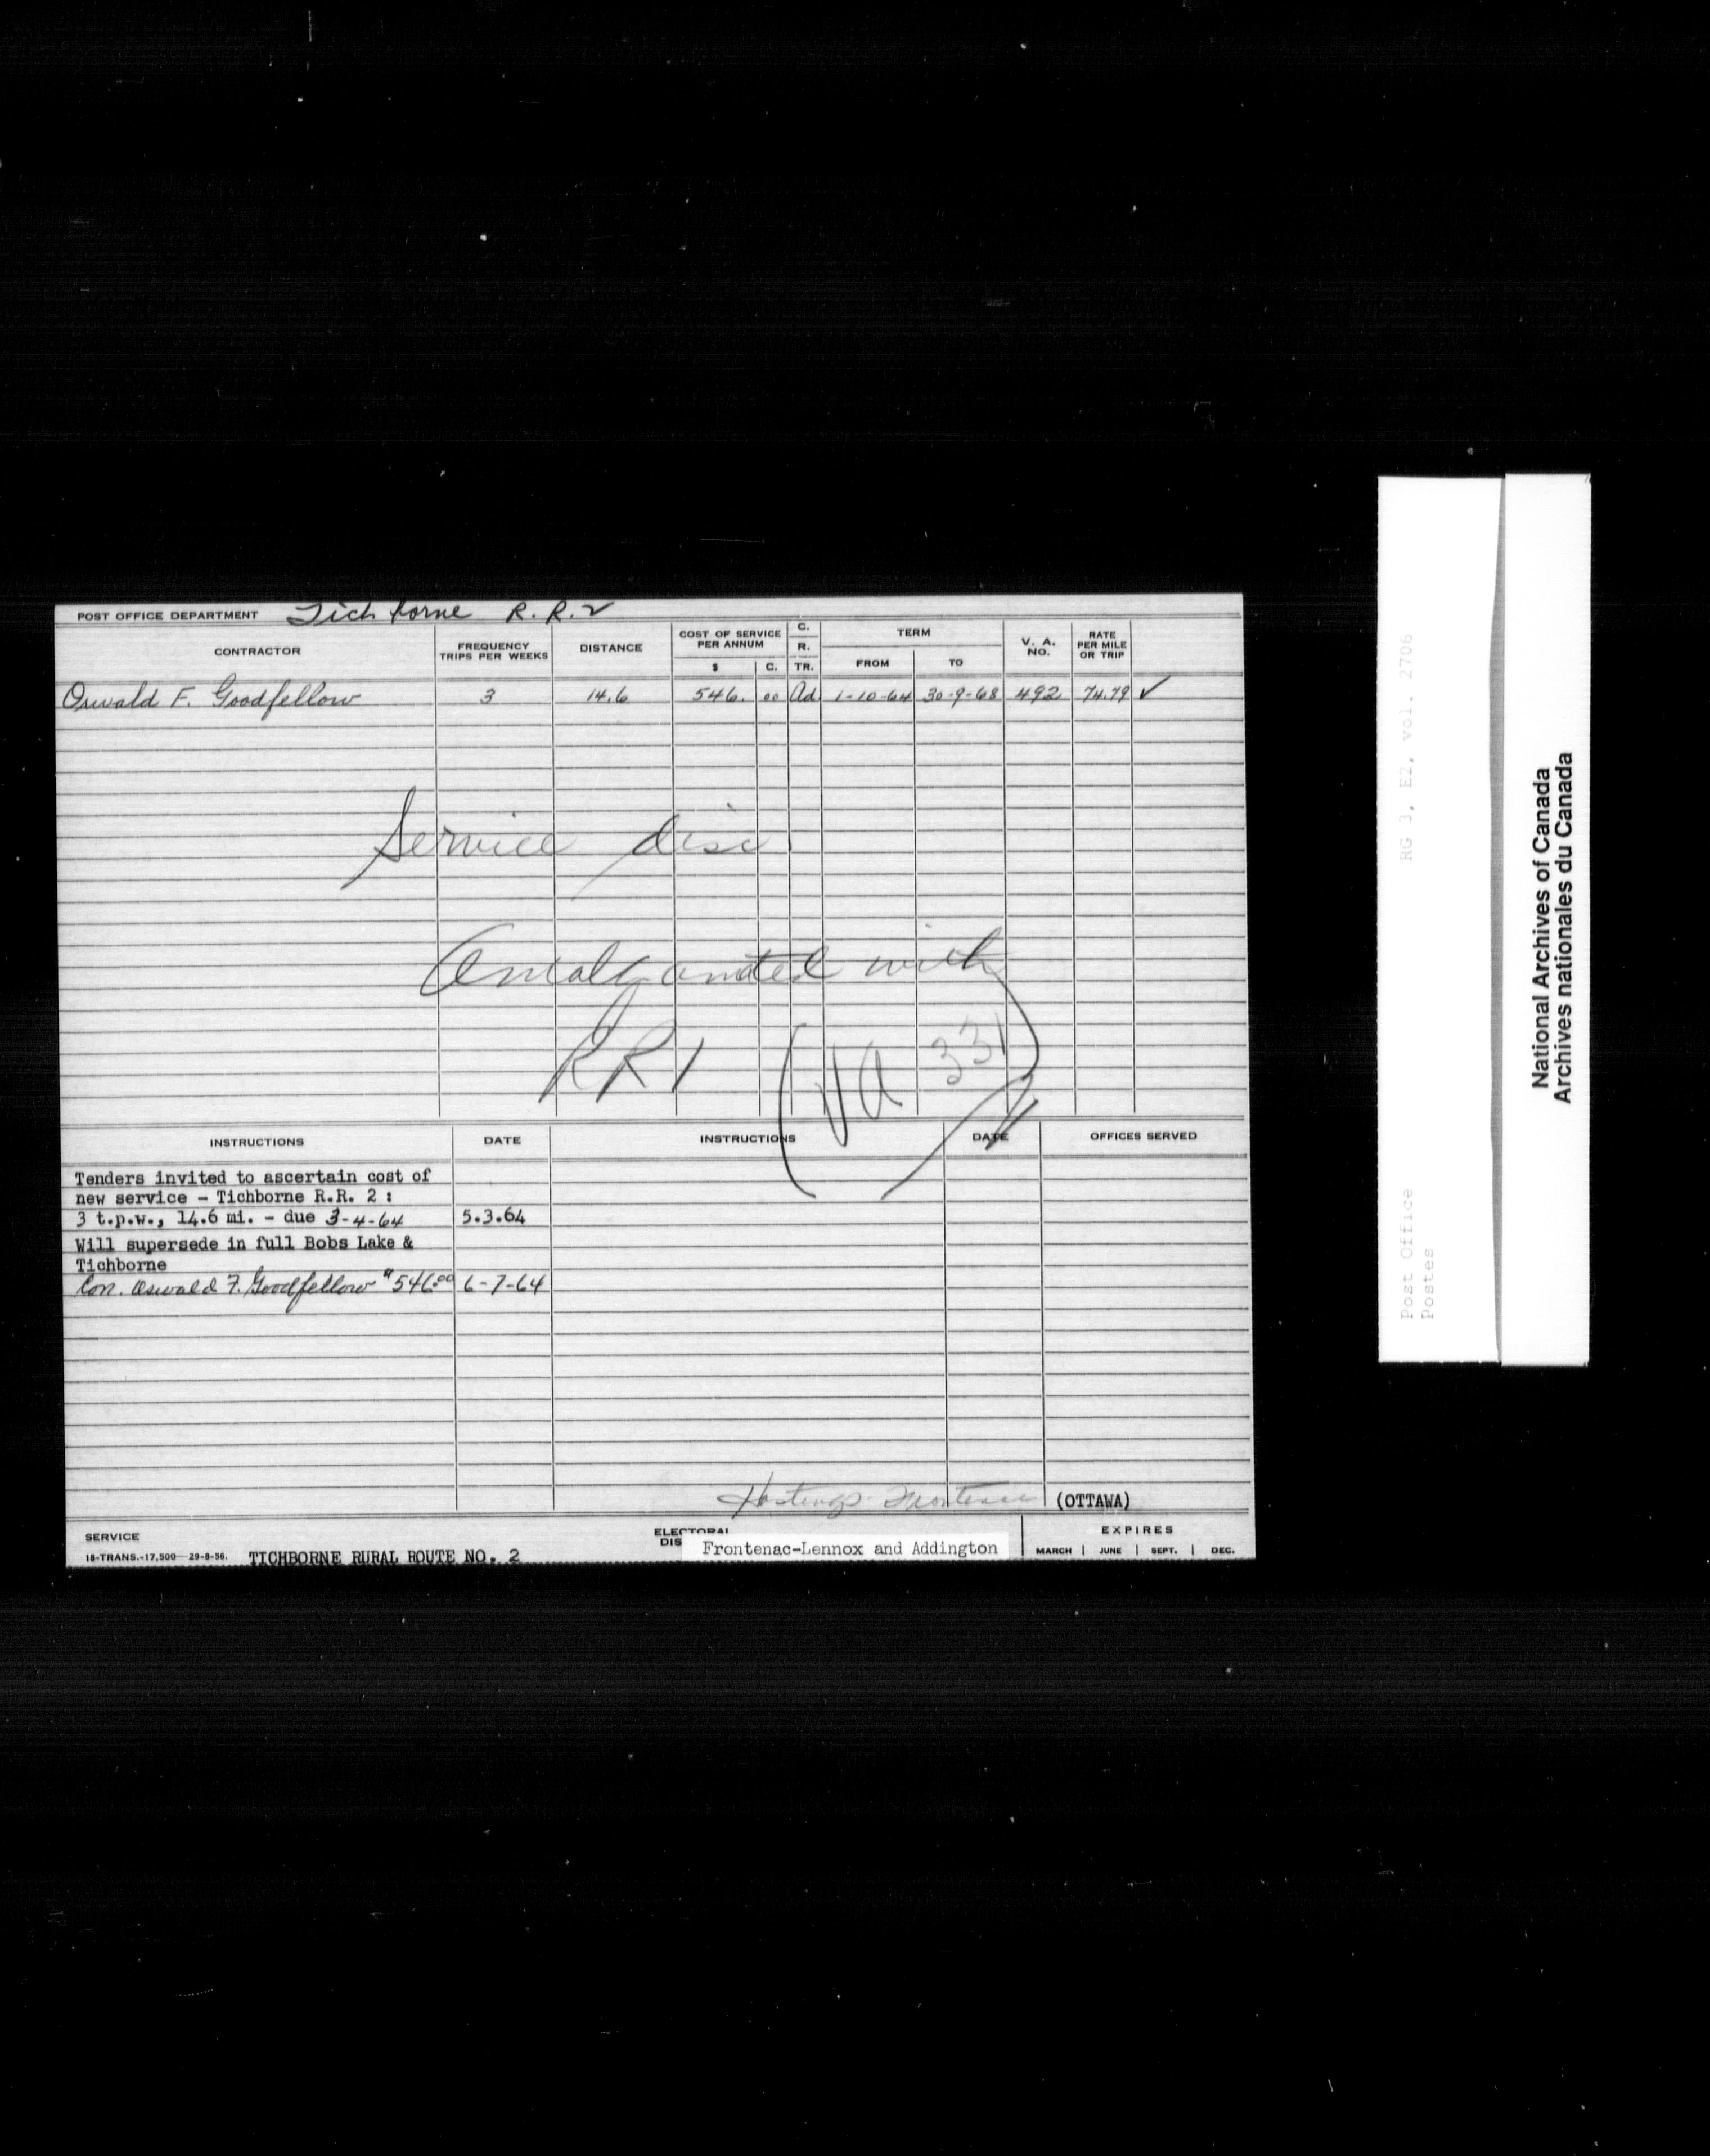 POST OFFICE DEPARTMENT Tichborne R. R. 2
CONTRACTOR FREQUENCY TRIPS PER WEEKS DISTANCE COST OF SERVICE PER ANNUM $ C. C. R. TR. TERM FROM TO V. A. NO. RATE PER MILE OR TRIP
Oswald F. Goodfellow 3 14.6 546. 00 Ad. 1-10-64 30-9-68 492 74.79 ✓
Service disc
Amalgamated with
RR1 (VA 331)
INSTRUCTIONS DATE INSTRUCTIONS DATE OFFICES SERVED
Tenders invited to ascertain cost of
new service - Tichborne R.R. 2 :
3 t.p.w., 14.6 mi. - due 3-4-64 5.3.64
Will supersede in full Bobs Lake &
Tichborne
Con. Oswald F. Goodfellow "546.00 6-7-64
Hastings-Frontenac (OTTAWA)
SERVICE ELECTORAL DIS EXPIRES
18-TRANS.-17,500-29-8-56. TICHBORNE RURAL ROUTE NO. 2 Frontenac-Lennox and Addington MARCH | JUNE | SEPT. | DEC.
RG 3, E2, vol. 2706
Post Office
Postes
National Archives of Canada
Archives nationales du Canada